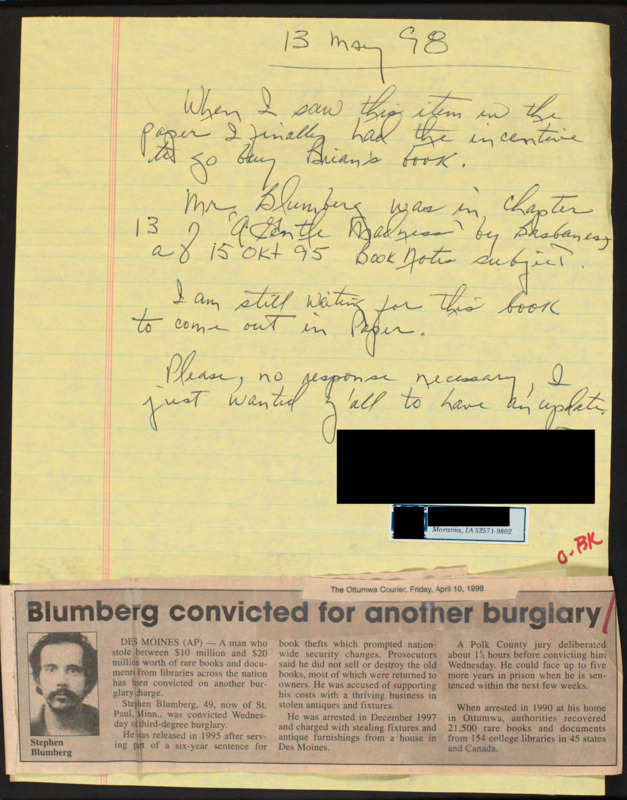 13 May 98
When I saw this item in the
paper I finally had the incentive
to go buy Brian's book.
Mr. Blumberg was in chapter
13 of "A Gentle Madness" by Basbanes,
a 15 Okt 95 BookNotes subject.
I am still waiting for this book
to come out in Paper.
Please, no response necessary, I
just wanted y'all to have an update.
Moravia, IA 52571-9802
O-BK
The Ottumwa Courier, Friday, April 10, 1998
Blumberg convicted for another burglary
Stephen
Blumberg
DES MOINES (AP) — A man who
stole between $10 million and $20
million worth of rare books and docu-
ments from libraries across the nation
has been convicted on another bur-
glary charge.
Stephen Blumberg, 49, now of St.
Paul, Minn., was convicted Wednes-
day of third-degree burglary.
He was released in 1995 after serv-
ing part of a six-year sentence for
book thefts which prompted nation-
wide security changes. Prosecutors
said he did not sell or destroy the old
books, most of which were returned to
owners. He was accused of supporting
his costs with a thriving business in
stolen antiques and fixtures.
He was arrested in December 1997
and charged with stealing fixtures and
antique furnishings from a house in
Des Moines.
A Polk County jury deliberated
about 1½ hours before convicting him
Wednesday. He could face up to five
more years in prison when he is sen-
tenced within the next few weeks.
When arrested in 1990 at his home
in Ottumwa, authorities recovered
21,500 rare books and documents
from 154 college libraries in 45 states
and Canada.